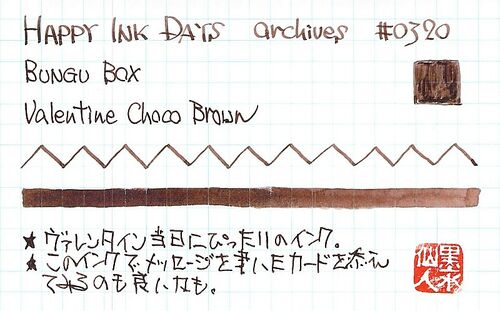 HAPPY INK DAYS archives #0320
BUNGU BOX
Valentine Choco Brown
★ ヴァレンタイン当日にぴったりのインク。
★ このインクで、メッセージを書いたカードを添え
てみるのも良いかも。